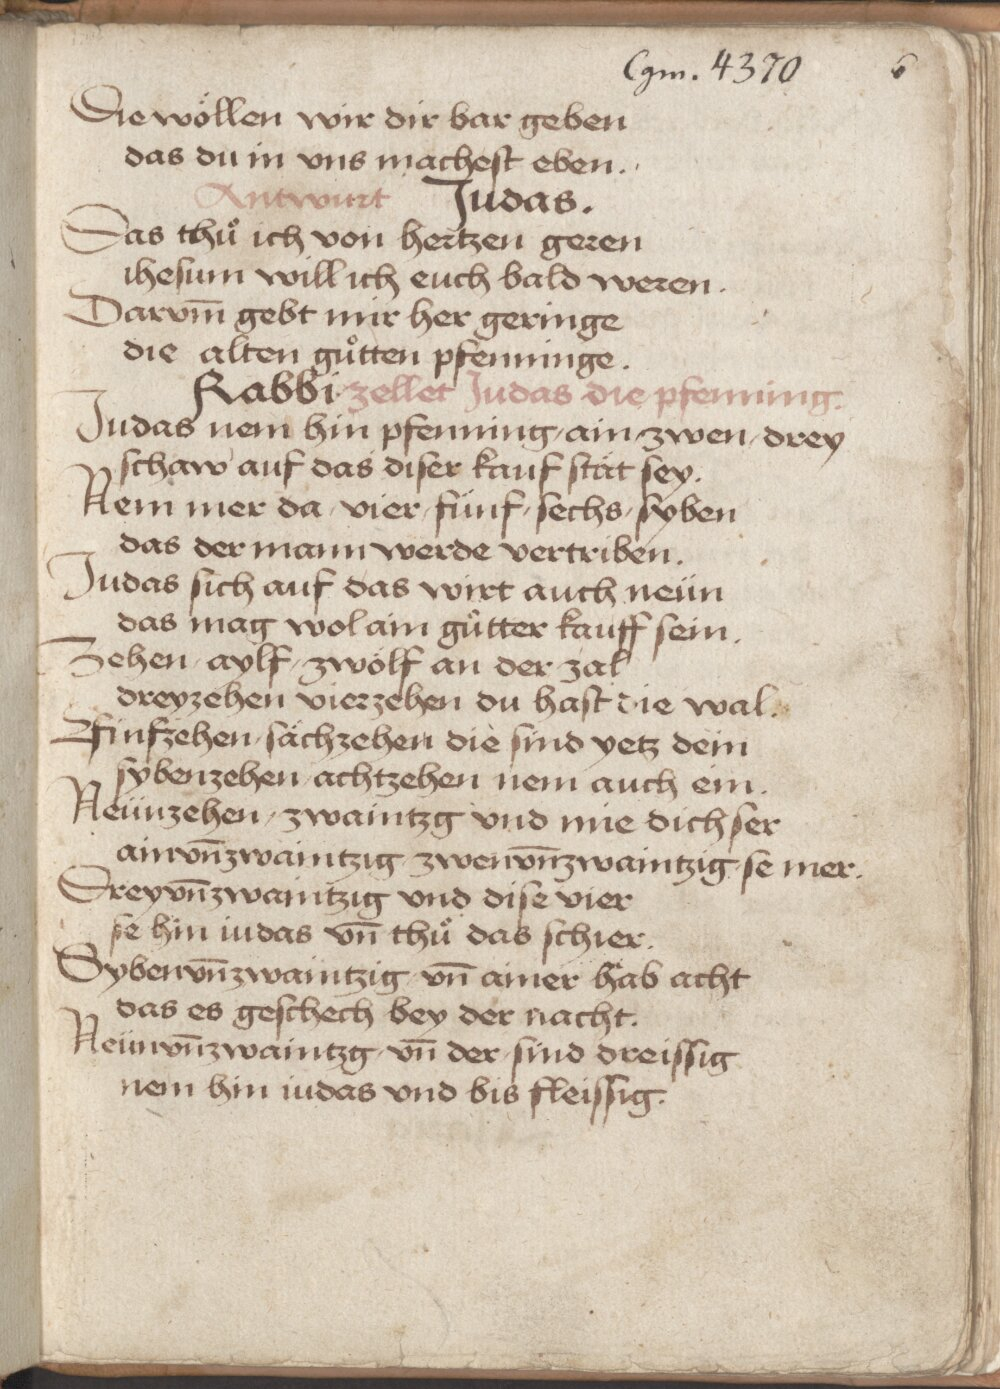 Cgm. 4370 6
Die wöllen wir dir bar geben
das du in vns machest eben.
Antwurt Judas.
Das thuͦ ich von hertzen geren
ihesum will ich euch bald weren.
Darvm̄ gebt mir her geringe
die alten guͦtten pfenninge.
Rabbi zellet Judas die pfenning.
Judas nem hin pfenning / ain / zwen / drey
schaw auf das diser kauf stät sey.
Nem mer da / vier / fünf / sechs / syben
das der mann werde vertriben.
Judas sich auf das wirt auch neün
das mag wol ain guͦtter kauff sein.
Zehen / aylf / zwölf an der zal
dreyzehen vierzehen du hast die wal.
Finfzehen / sächzehen die sind yetz dein
sybenzehen achtzehen nem auch ein.
Neünzehen / zwaintzg vnd mie dich ser
ainvn̄zwaintzig zwenvn̄zwaintzig se mer.
Dreyvn̄zwaintzig vnd dise vier
se hin iudas vn̄ thuͦ das schier.
Sybenvn̄zwaintzig vn̄ ainer hab acht
das es geschech bey der nacht.
Neünvn̄zwaintzg vn̄ der sind dreissig
nem hin iudas vnd bis fleissig.